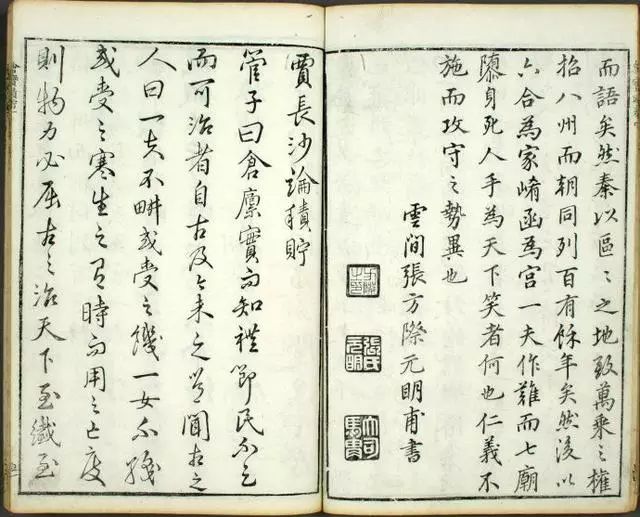 而語矣然秦以區〻之地致萬乗之權
招八州而朝同列百有餘年矣然後以
六合為家崤函為宮一夫作難而七廟
隳身死人手為天下笑者何也仁義不
施而攻守之勢異也
雲間張方際元明甫書
張氏元明
賈長沙論積貯
管子曰倉廩實而知禮節民不足
而可治者自古及今未之嘗聞古之
人曰一夫不畊或受之饑一女不織
或受之寒生之有時而用之亡度
則物力必屈古之治天下至纖至